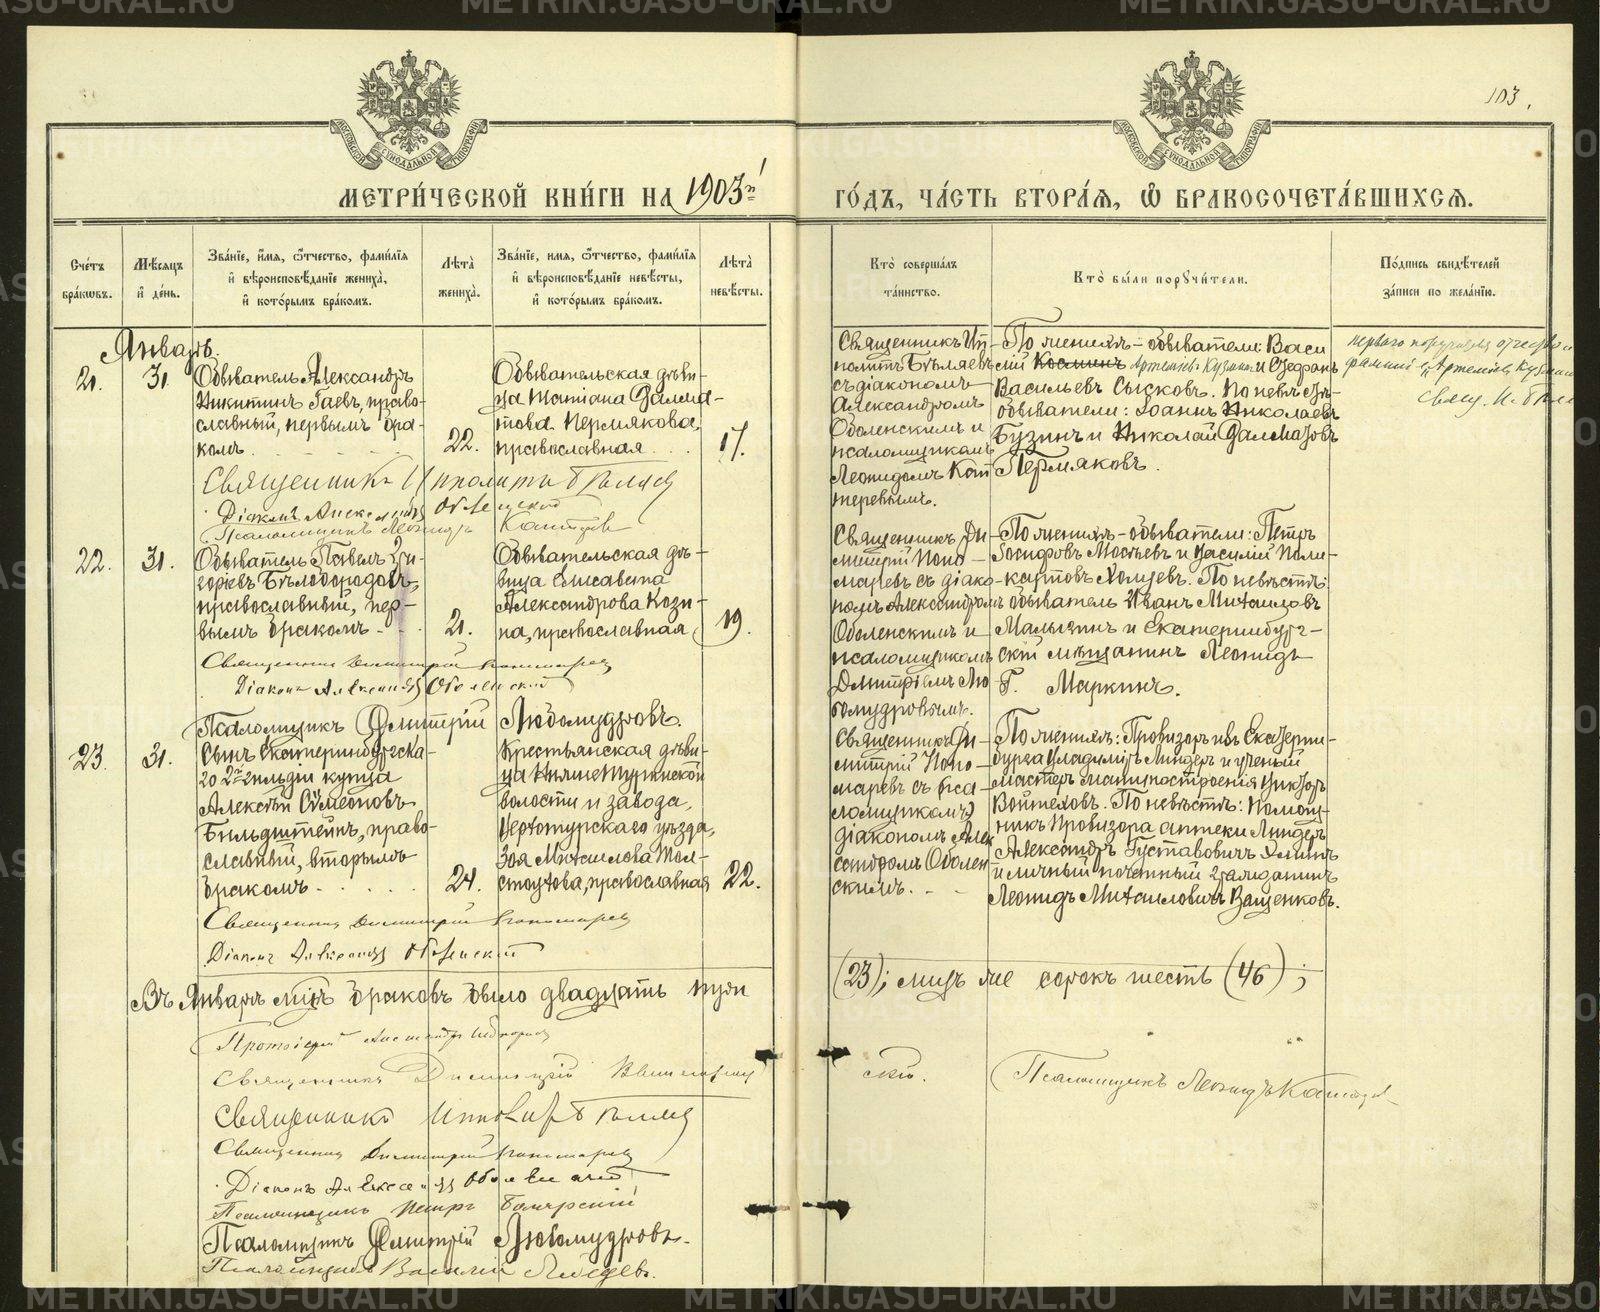 103.
МЕТРИ́ЧЕСКОЙ КНИ́ГИ НА 1903й
ГО́ДЪ, ЧА́СТЬ ВТОРА́Я, Ѿ БРАКОСОЧЕТА́ВШИХСЯ.
Сче́тъ бра́кѡвъ.
Мѣ́сяцъ и де́нь.
Зва́ніе, и́мя, ѻ́тчество, фами́лія и вѣроисповѣ́даніе жениха̀, и кото́рымъ бра́комъ.
Лѣта̀ жениха̀.
Зва́ніе, имя, ѻ́тчество, фами́лія и вѣроисповѣ́даніе невѣ́сты, и кото́рымъ бра́комъ.
Лѣта̀ невѣ́сты.
Кто̀ соверша́лъ та́инство.
Кто̀ бы́ли поручи́тели.
По́дпись свидѣ́телей за́писи по жела́нію.
Январь.
21. 31.
Обыватель Александръ
Никитинъ Гаевъ, право-
славный, первымъ бра-
комъ. 22.
Обывательская дѣви-
ца Татіана Далма-
това Пермякова,
православная 17.
Священникъ Ип-
политъ Бѣляевъ
съ діакономъ
Александромъ
Оболенскимъ и
псаломщикомъ
Леонидомъ
По женихѣ - обыватели: Васи
лій Косминъ Артеміевъ и
Васильевъ Сысковъ. По невѣстѣ
обыватели: Іоаннъ Николаевъ
Бузинъ и Николай Далматовъ
Пермяковъ.
Священникъ Ипполитъ Бѣляев
Діаконъ Александръ Оболенскій
Псаломщикъ Леонидъ
22. 31.
Обыватель Павелъ Гри-
горіевъ Бѣлобородовъ,
православный, пер-
вымъ бракомъ. 21.
Обывательская дѣ-
вица Елисавета
Александрова Кози-
на, православная 19.
Священникъ Ди-
митрій Попо-
маревъ съ діако-
номъ Александромъ
Оболенскимъ и
псаломщикомъ
Дмитріемъ Лю-
бомудровымъ.
По женихѣ - обыватели: Петръ
Іосифовъ и Василій Поли-
карповъ По невѣстѣ:
обыватель Иванъ Михаиловъ
Малыгинъ и Екатеринбург-
скій мѣщанинъ Леонидъ
Г. Маркинъ.
Священникъ Димитрій Пономарев
Діаконъ Александръ Оболенскій
Псаломщикъ Дмитрій Любомудровъ.
23. 31.
Сынъ Екатеринбургска-
го 2й гильдіи купца
Алексѣй Симеоновъ
Бильдштейнъ, право-
славный, вторымъ
бракомъ 24.
Крестьянская дѣви-
ца Нижнетуринской
волости и завода,
Верхотурскаго уѣзда,
Зоя Михаилова Тол-
стоухова, православная 22.
Священникъ Ди-
митрій Поно-
маревъ съ пса-
ломщикомъ
діакономъ Алек
сандромъ Оболен-
скимъ.
По женихѣ: Провизоръ изъ Екатерин-
бурга Владиміръ Линдеръ и ученый
мастеръ машиностроенія Викторъ
Войтеховъ. По невѣстѣ: Помощ-
никъ Провизора аптеки Линдеръ
Александръ Густавовичъ
и личный почетный гражданинъ
Леонидъ Михаиловичъ Ващенковъ.
Священникъ Димитрій Пономарев
Діаконъ Александръ Оболенскій
Въ Январѣ мцѣ браковъ было двадцать три
(23); лицъ же сорокъ шесть (46);
Протоіерей Александръ
Священникъ Димитрій
Псаломщикъ Леонидъ
Священникъ Ипполитъ Бѣляев
Священникъ Димитрій Пономарев
Діаконъ Александръ Оболенскій
Псаломщикъ Петръ Боярскій
Псаломщикъ Дмитрій Любомудровъ.
Псаломщикъ Василій Лебедевъ.
METRIKI.GASO-URAL.RU